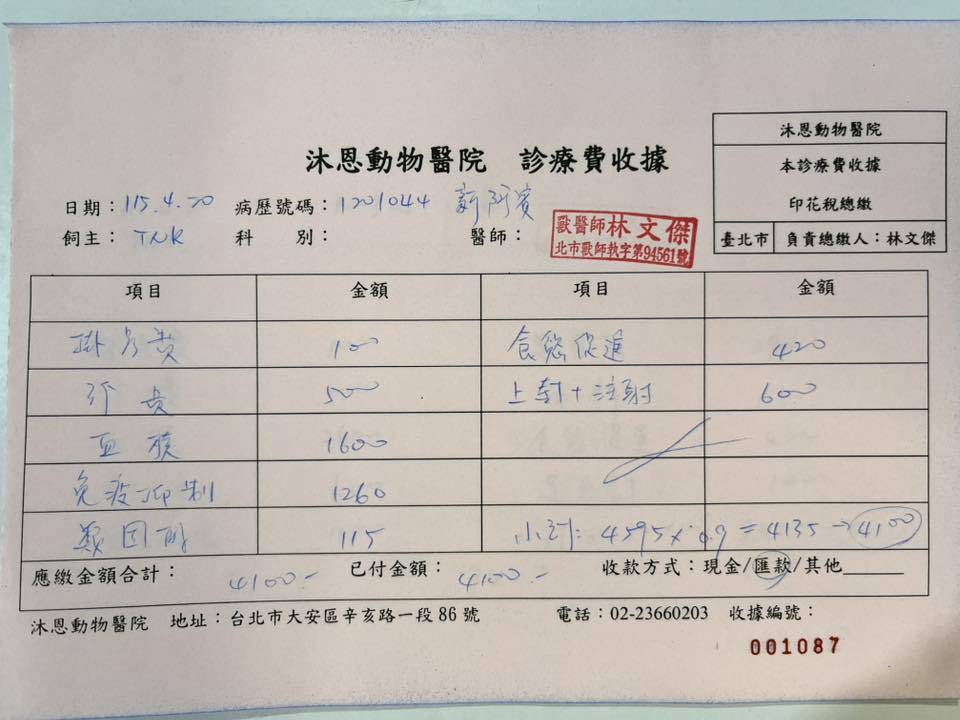 沐恩動物醫院
本診療費收據
印花稅總繳
臺北市 負責總繳人：林文傑
沐恩動物醫院 診療費收據
日期：115.4.20 病歷號碼：1201044 新阿賓
飼主：TNR 科 別： 醫師：
獸醫師林文傑
北市獸師執字第94561號
項目 金額 項目 金額
掛号費 100 食慾促進 420
診費 500 上針+注射 600
血檢 1600
免疫抑制 1260
類固醇 115 小計: 4595×0.9=4135→4100
應繳金額合計：4100- 已付金額：4100- 收款方式：現金/匯款/其他______
沐恩動物醫院 地址：台北市大安區辛亥路一段86號 電話：02-23660203 收據編號：
001087